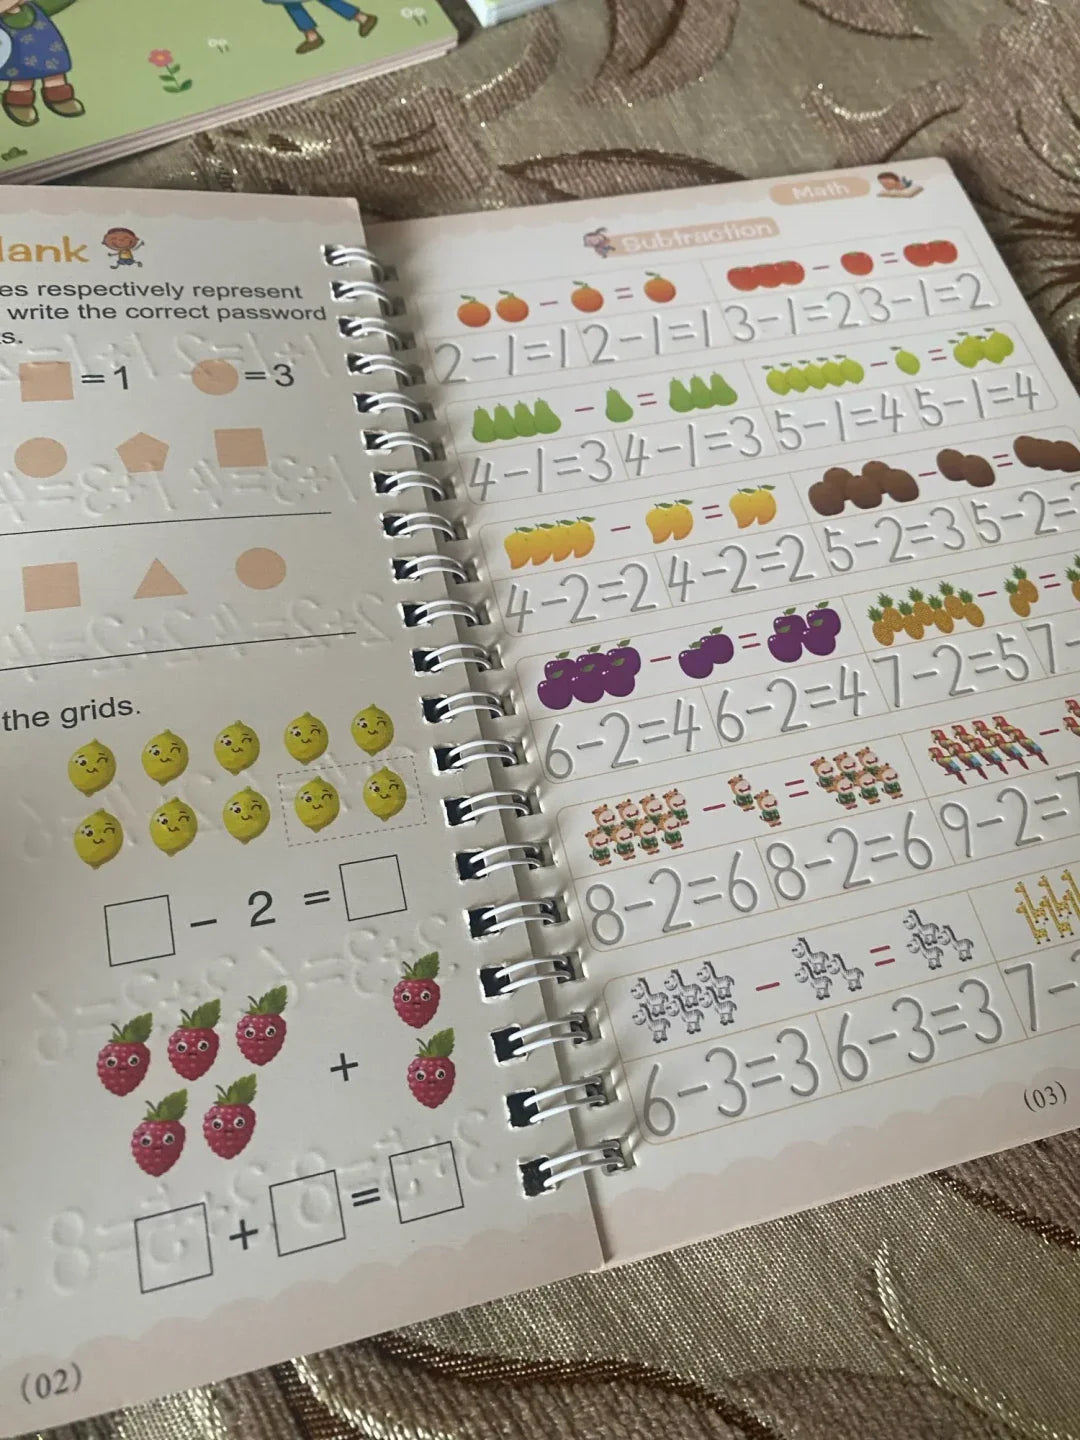 lank
es respectively represent
write the correct password
s.
=1 =3
the grids.
- 2 =
+
+ =
(02)
Math
Subtraction
- = - =
2-1=1 2-1=1 3-1=2 3-1=2
- = - =
4-1=3 4-1=3 5-1=4 5-1=4
- = - =
4-2=2 4-2=2 5-2=3 5-2=
- = - =
6-2=4 6-2=4 7-2=5 7-
- = -
8-2=6 8-2=6 9-2=
- =
6-3=3 6-3=3 7-
(03)